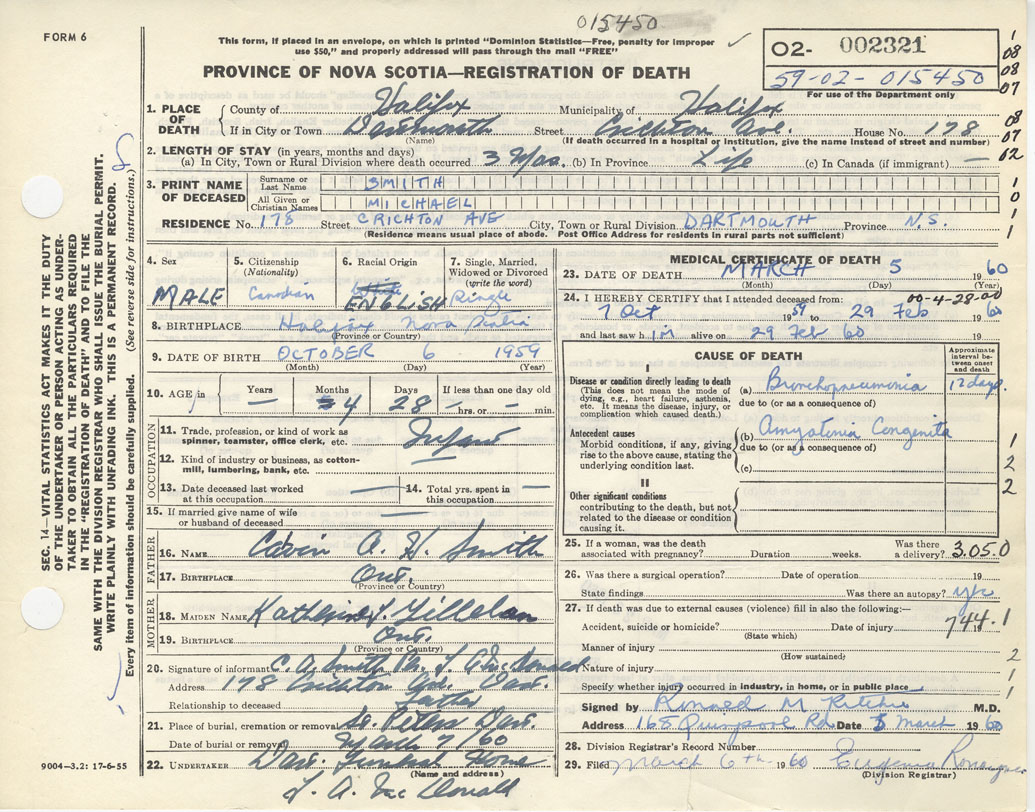 015450
FORM 6
This form, if placed in an envelope, on which is printed "Dominion Statistics—Free, penalty for improper
use $50," and properly addressed will pass through the mail "FREE"
02- 002321
59-02-015450
For use of the Department only
PROVINCE OF NOVA SCOTIA—REGISTRATION OF DEATH
1. PLACE OF DEATH
County of Halifax Municipality of Halifax
If in City or Town Dartmouth Street Crichton Ave. House No. 178
(Name) (If death occurred in a hospital or institution, give the name instead of street and number)
2. LENGTH OF STAY (in years, months and days)
(a) In City, Town or Rural Division where death occurred 3 Mos. (b) In Province Life (c) In Canada (if immigrant) —
3. PRINT NAME OF DECEASED
Surname or Last Name SMITH
All Given or Christian Names MICHAEL
RESIDENCE No. 178 Street CRICHTON AVE City, Town or Rural Division DARTMOUTH Province N.S.
(Residence means usual place of abode. Post Office Address for residents in rural parts not sufficient)
4. Sex MALE
5. Citizenship (Nationality) Canadian
6. Racial Origin ENGLISH
7. Single, Married, Widowed or Divorced (write the word) Single
8. BIRTHPLACE Halifax Nova Scotia
(Province or Country)
9. DATE OF BIRTH OCTOBER 6 1959
(Month) (Day) (Year)
10. AGE in Years — Months 4 Days 28 If less than one day old — hrs. or — min.
OCCUPATION
11. Trade, profession, or kind of work as spinner, teamster, office clerk, etc. Infant
12. Kind of industry or business, as cotton-mill, lumbering, bank, etc. —
13. Date deceased last worked at this occupation —
14. Total yrs. spent in this occupation —
15. If married give name of wife or husband of deceased —
FATHER
16. NAME A. H. Smith
17. BIRTHPLACE Ont.
(Province or Country)
MOTHER
18. MAIDEN NAME
19. BIRTHPLACE Ont.
(Province or Country)
20. Signature of informant C. A. Smith
Address 178 Crichton Ave. Dart.
Relationship to deceased Father
21. Place of burial, cremation or removal St. Peters Dart.
Date of burial or removal March 7/60
22. UNDERTAKER Dart. Funeral Home
(Name and address)
MEDICAL CERTIFICATE OF DEATH
23. DATE OF DEATH MARCH 5 1960
(Month) (Day) (Year)
00-4-28-00
24. I HEREBY CERTIFY that I attended deceased from:
7 Oct 1959 to 29 Feb 1960
and last saw him alive on 29 Feb 60 19
CAUSE OF DEATH
Approximate interval between onset and death
I
Disease or condition directly leading to death
(This does not mean the mode of dying, e.g., heart failure, asthenia, etc. It means the disease, injury, or complication which caused death.)
(a) Bronchopneumonia 12 days.
due to (or as a consequence of)
Antecedent causes
Morbid conditions, if any, giving rise to the above cause, stating the underlying condition last.
(b) Amyatonia Congenita
due to (or as a consequence of)
(c)
II
Other significant conditions
contributing to the death, but not related to the disease or condition causing it.
25. If a woman, was the death associated with pregnancy? Duration weeks. Was there a delivery? 3.05.0
26. Was there a surgical operation? Date of operation 19
State findings Was there an autopsy? yes
27. If death was due to external causes (violence) fill in also the following:—
Accident, suicide or homicide? Date of injury 19
(State which)
744.1
Manner of injury
(How sustained)
Nature of injury
Specify whether injury occurred in industry, in home, or in public place
Signed by Ronald M Ritchie M.D.
Address 168 Quinpool Rd Date 5 March 1960
28. Division Registrar's Record Number
29. Filed March 6th 1960 Eugenia
(Division Registrar)
SEC. 14—VITAL STATISTICS ACT MAKES IT THE DUTY
OF THE UNDERTAKER OR PERSON ACTING AS UNDER-
TAKER TO OBTAIN ALL THE PARTICULARS REQUIRED
IN THE "REGISTRATION OF DEATH" AND TO FILE THE
SAME WITH THE DIVISION REGISTRAR WHO SHALL ISSUE THE BURIAL PERMIT.
WRITE PLAINLY WITH UNFADING INK. THIS IS A PERMANENT RECORD.
Every item of information should be carefully supplied. (See reverse side for instructions.)
9004—3.2: 17-6-55
1
08
08
07
08
07
02
1
0
1
1
1
2
2
2
1
1